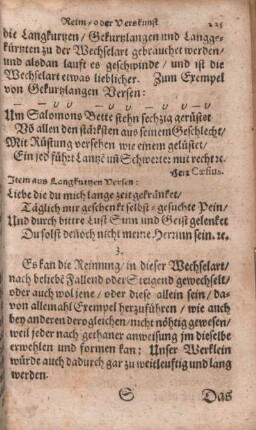 Reim- oder Verskunst 225
die Langkurtzen, Gekurtzlangen und Langge-
kürtzten zu der Wechselart gebrauchet werden/
und alsdan lauft es geschwinde / und ist die
Wechselart etwas lieblicher. Zum Exempel
von Gekurtzlangen Versen:
Um Salomons Bette stehn sechzig gerüstet
Võ allen den stärksten aus seinem Geschlecht/
Mit Rüstung versehen wie einem gelüstet/
Ein jed führt Lantzē uñ Schwerte: nur recht ꝛc.
Item aus Langkurtzen Versen:
Liebe die du mich lange zeit gekränket/
Täglich mir geschenkt selbst-gesuchte Pein/
Und durch bittre Lust Sinn und Geist gelenket
Du solst dēnoch nicht meine Herrinn sein. ꝛc.
3.
Es kan die Reimung / in dieser Wechselart/
nach beliebē Fallend oder Steigend gewechselt/
oder auch wol jene / oder diese allein sein / da-
von allemahl Exempel herzuführen / wie auch
bey anderen derogleichen / nicht nöhtig gewesen/
weil jeder nach gethaner anweisung im dieselbe
erwehlen und formen kan: Unser Werklein
würde auch dadurch gar zu weitleuftig und lang
werden.
S Das